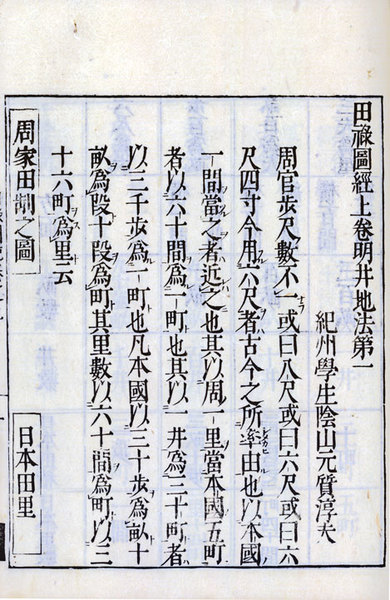 田祿圖經上卷明井地法第一
紀州學生陰山元質淳夫
周官步尺數不一或曰八尺或曰六尺或曰六
尺四寸今用六尺者古今之所率由也以本國
一間當之者近之也其以周一里當本國五町
者以六十間爲一町也其以一井爲三十町者
以三千步爲一町也凡本國以三十步爲畝十
畝爲段十段爲町其里數以六十間爲町以三
十六町爲里云
周家田制之圖
日本田里